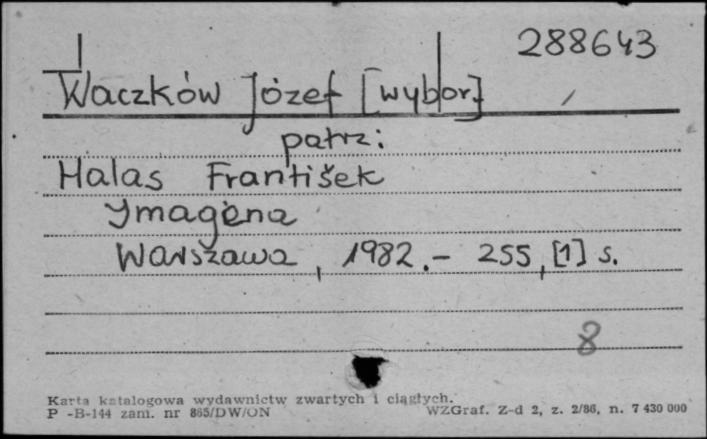 288643
Waczków Józef [wybór]
patrz:
Halas František
Ymagena
Warszawa, 1982.- 255, [1] s.
8
Karta katalogowa wydawnictw zwartych i ciągłych.
P -B-144 zam. nr 865/DW/ON WZGraf. Z-d 2, z. 2/86, n. 7 430 000